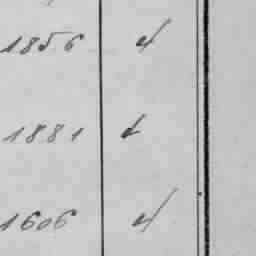 1856 d
1881 d
1606 d